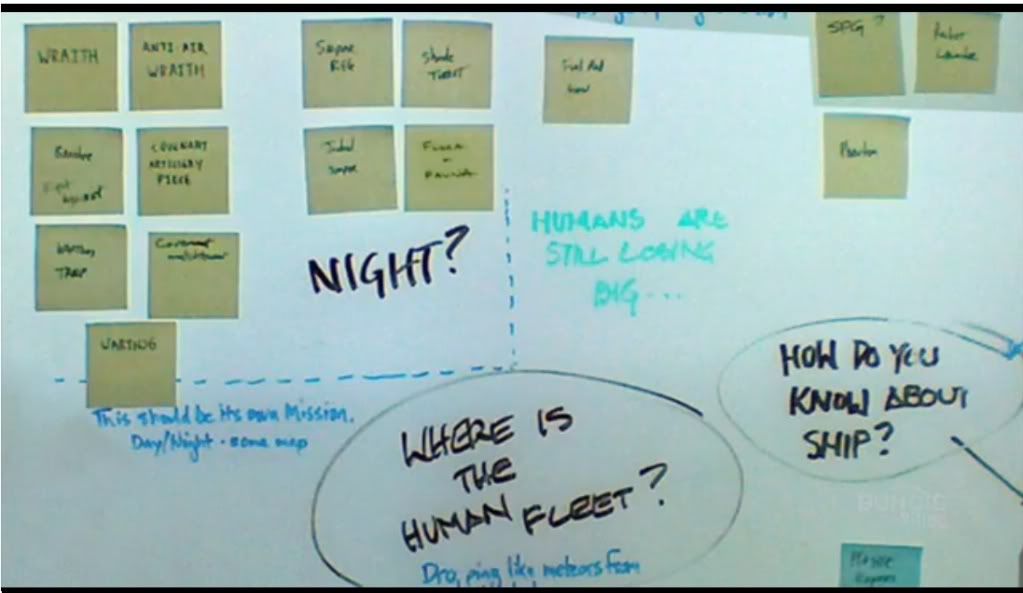 WRAITH
ANTI-AIR
WRAITH
Sniper
REG
Shade
TURRET
Fuel Rod
Gun
SPG?
Rocket
Launcher
Banshee
Fight
against
COVENANT
ARTILLERY
PIECE
Jackal
Sniper
FLORA
FAUNA
Phantom
TRAP
Covenant
WARTHOG
NIGHT?
HUMANS ARE
STILL LOSING
BIG...
This should be its own Mission.
Day/Night - same map
WHERE IS
THE
HUMAN FLEET?
Dropping like meteors from
HOW DO YOU
KNOW ABOUT
SHIP?
BUNGiE